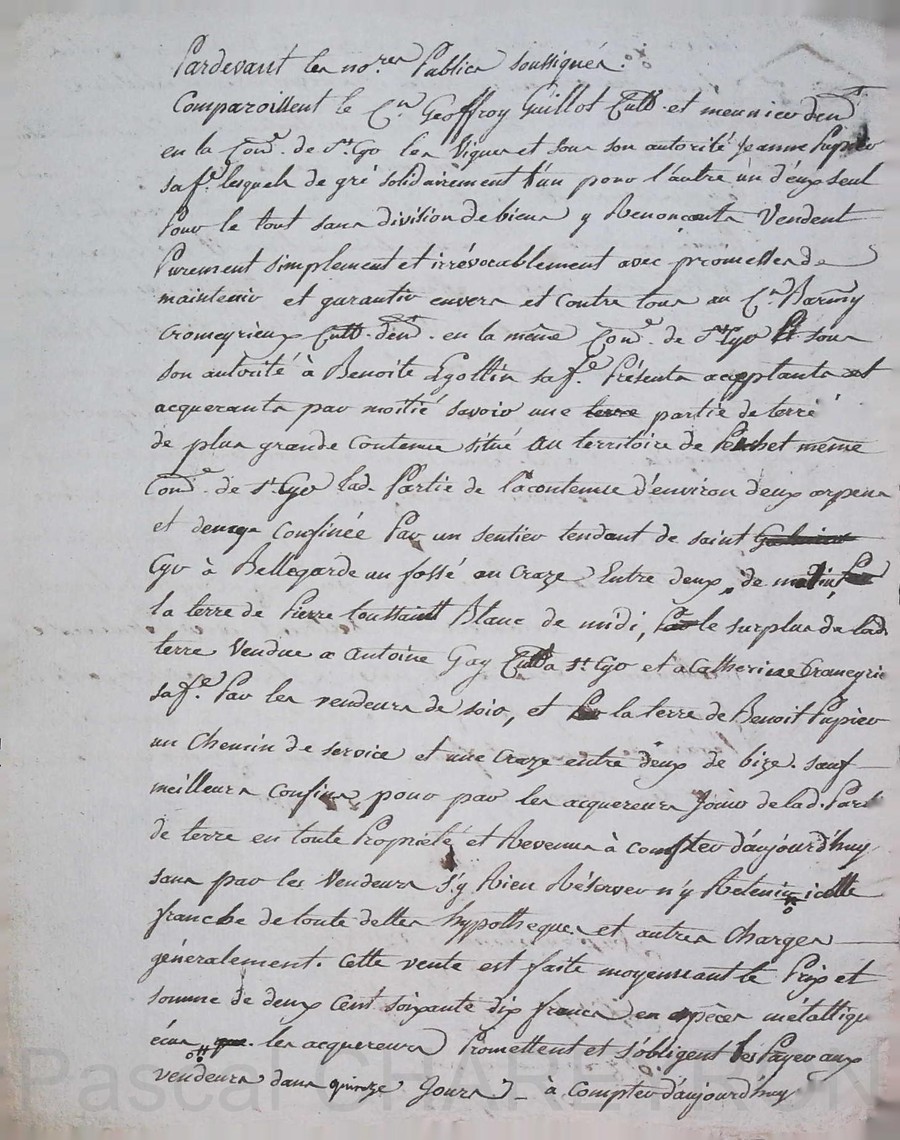 Pardevant les no.res Publics soussignés.
Comparoissent le C.n Geoffroy Guillot Cult.r et meunier dem.t
en la Com.e de S.t Cyr les Vignes et sous son autorité Jeanne Pupier
sa f.e lesquels de gré solidairement l'un pour l'autre un d'eux seul
Pour le tout sans division de biens y Renonçants Vendent
Purement simplement et irrévocablement avec promesses de
maintenir et garantir envers et contre tous au C.n Barmy
Cromeyrieux Cult.r dem.t en la même Com.e de S.t Cyr et sous
son autorité à Benoite Egollin sa f.e Présents acceptants et
acquerants par moitié savoir une terre partie de terre
de plus grande Contenue situé au territoire de même
Com.e de S.t Cyr lad. Partie de la contenue d'environ deux arpens
et demy Confinée Par un sentier tendant de saint
Cyr à Bellegarde un fossé ou Craze Entre deux, de matin,
la terre de Pierre toussaint Blanc de midi, Par le surplus de lad.
terre Vendue a Antoine Gay Cult.r a S.t Cyr et a Catherine Cromeyrie
sa f.e Par les vendeurs de soir, et Par la terre de Benoit Pupier
un Chemin de service et une Craze entre deux de bize. sauf
meilleurs Confins, pour par les acquereurs Jouir de lad. Part.
de terre en toute Propriété et Revenus à compter d'aujourd'huy
sans par les Vendeurs s'y Rien Réserver n'y Retenir icelle
franche de toute dettes hypotheques et autres Charges
généralement. Cette vente est faite moyennant le Prix et
somme de deux Cent soixante dix francs en espèces métalliq.
que les acquereurs Promettent et s'obligent Payer aux
vendeurs dans quinze Jours à Compter d'aujourd'huy
Pascal CHARETRON